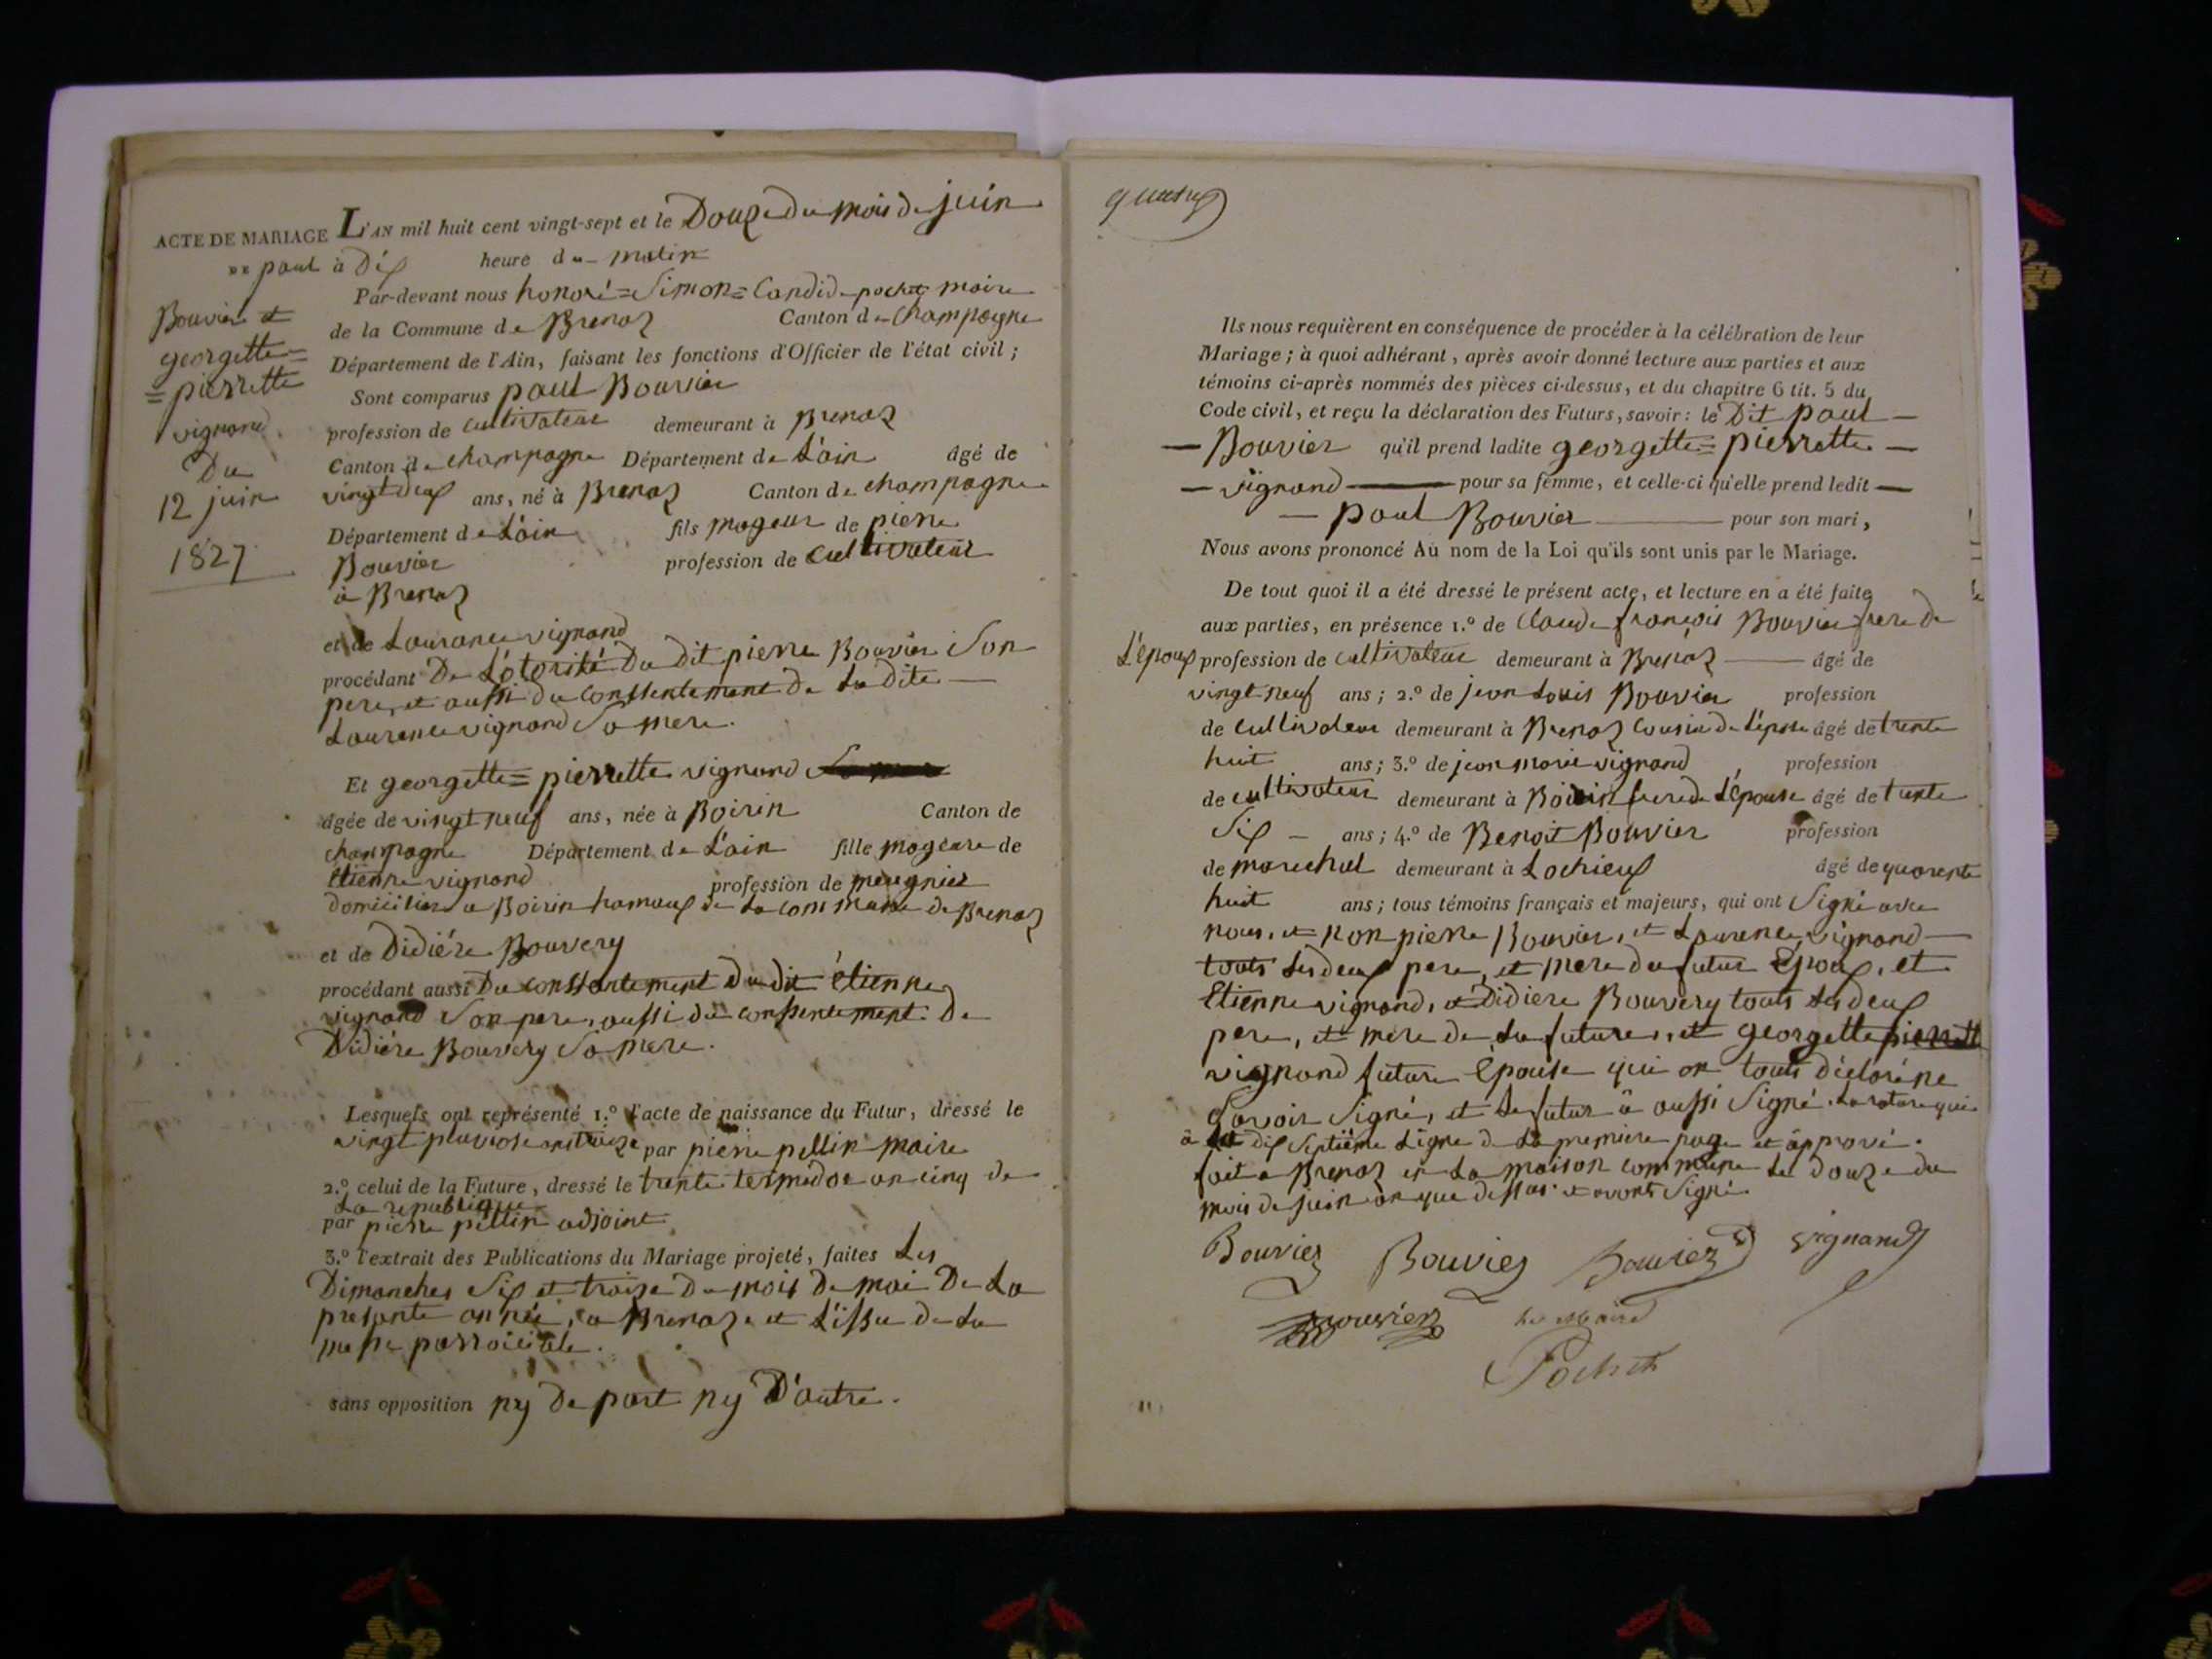 ACTE DE MARIAGE
DE paul
Bouvier et
georgette =
= pierrette
vignand
Du
12 juin
1827
L'AN mil huit cent vingt-sept et le Douze du mois de juin
à Dix heure du matin
Par-devant nous honoré = Simon = Candide pochet maire
de la Commune de Brenaz Canton de Champagne
Département de l'Ain, faisant les fonctions d'Officier de l'état civil ;
Sont comparus paul Bouvier
profession de cultivateur demeurant à Brenaz
Canton de champagne Département de L'ain âgé de
vingt deux ans, né à Brenaz Canton de champagne
Département de L'ain fils mageur de pierre
Bouvier profession de cultivateur
à Brenaz
et de Laurance vignand
procédant De L'otorité Du Dit pierre Bouvier Son
pere, et aussi du conssentement de La dite
Laurence vignand Sa mere.
Et georgette = pierrette vignand
âgée de vingt neuf ans, née à Boirin Canton de
champagne Département de L'ain fille mageure de
Etienne vignand profession de meugnier
domicilier a Boirin hamaux de La commune de Brenaz
et de Didiére Bouvery
procédant aussi Du conssentement Du dit étienne
vignand Son pere, aussi du conssentement De
Didiére Bouvery Sa mere.
Lesquels ont représenté 1.º l'acte de naissance du Futur, dressé le
vingt pluviose an treize par pierre pellin maire
2.º celui de la Future, dressé le trente termidor an cinq de
La republique
par pierre pellin adjoint
3.º l'extrait des Publications du Mariage projeté, faites Les
Dimanches Six et treize Du mois De mai De La
presante année, a Brenaz, et L'issue de La
messe parroiciale.
sans opposition ny De part ny D'autre.
quatre
Ils nous requièrent en conséquence de procéder à la célébration de leur
Mariage ; à quoi adhérant, après avoir donné lecture aux parties et aux
témoins ci-après nommés des pièces ci-dessus, et du chapitre 6 tit. 5 du
Code civil, et reçu la déclaration des Futurs, savoir : le Dit paul —
— Bouvier qu'il prend ladite georgette = pierrette —
— vignand — pour sa femme, et celle-ci qu'elle prend ledit —
— paul Bouvier — pour son mari,
Nous avons prononcé Au nom de la Loi qu'ils sont unis par le Mariage.
De tout quoi il a été dressé le présent acte, et lecture en a été faite
aux parties, en présence 1.º de Claude françois Bouvier frere de
L'époux profession de cultivateur demeurant à Brenaz — âgé de
vingt neuf ans ; 2.º de jean Louis Bouvier profession
de cultivateur demeurant à Brenaz cousin de L'époux âgé de trente
huit ans ; 3.º de jean marie vignand profession
de cultivateur demeurant à Boirin frere de L'épouse âgé de trente
Six — ans ; 4.º de Benoit Bouvier profession
de marechal demeurant à Lochieux âgé de quarente
huit ans ; tous témoins français et majeurs, qui ont Signé avec
nous, et non pierre Bouvier, et Laurence vignand —
touts Les deux pere, et mere du futur Epoux, et
Etienne vignand, et Didiere Bouvery touts Les deux
pere, et mere de La future, et georgette pierrette
vignand future Epouse qui on touts déclaré ne
Savoir Signé, et Le futur à aussi Signé. La rature qui
à La dix Septiéme Ligne de La premiere page et apprové.
fait a Brenaz en La maison commune Le douze du
mois de juin an que dessus et avons Signé.
Bouvier Bouvier Bouvier vignand
Bouvier Le Maire
Pochet